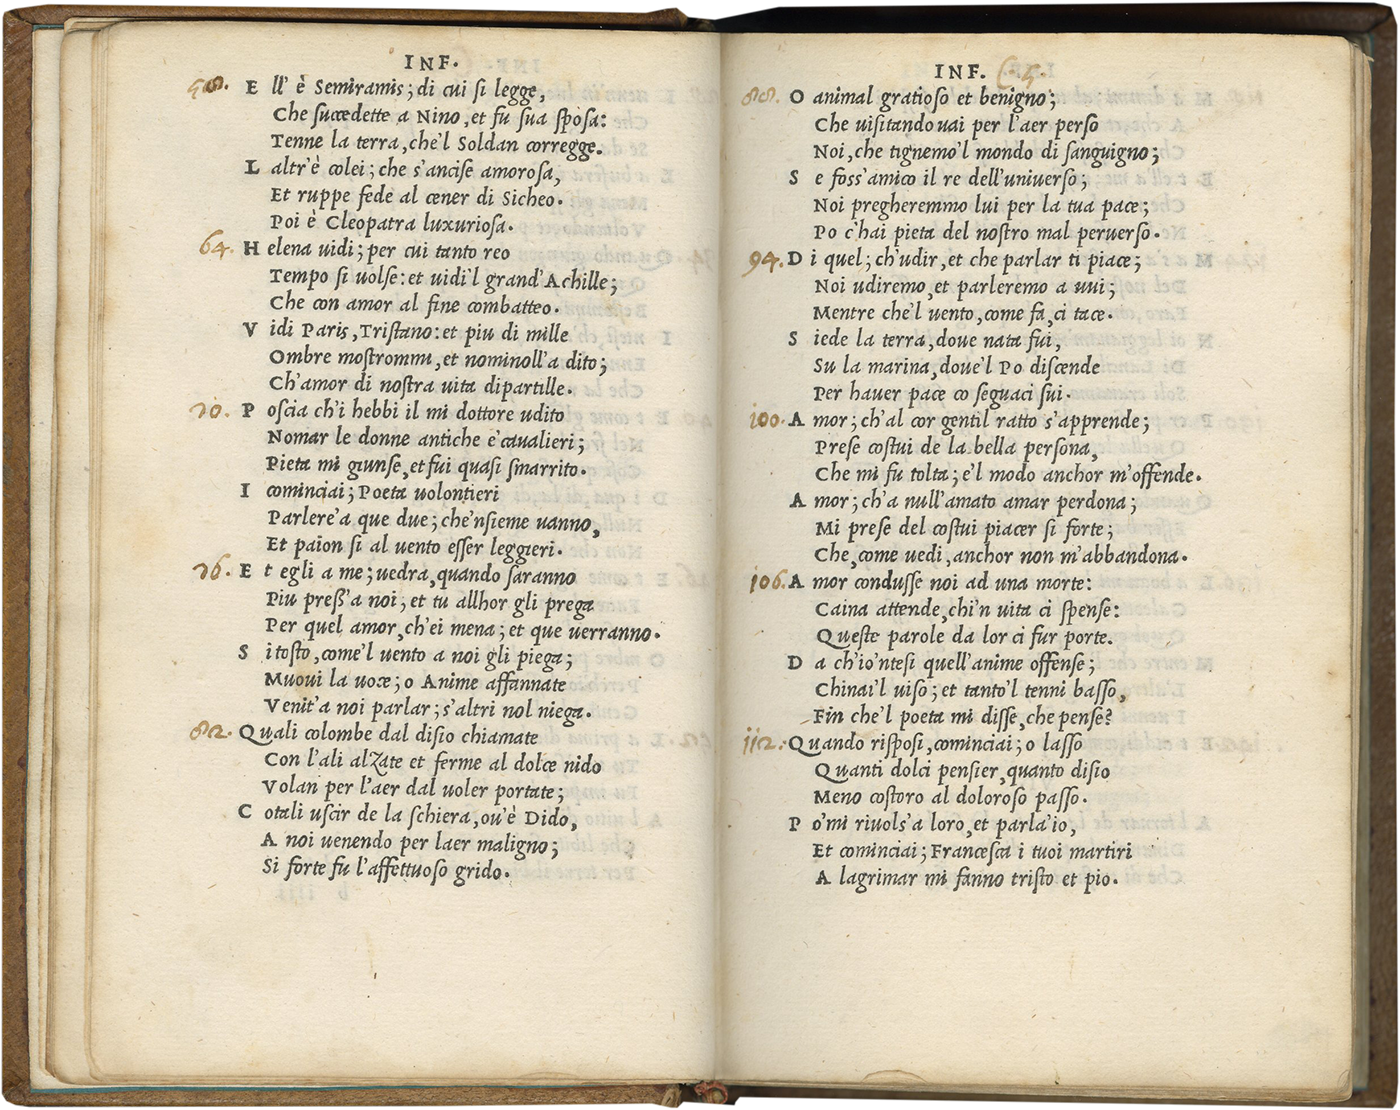 INF.
58. E ll' è Semiramis; di cui si legge,
Che succedette a Nino, et fu sua sposa:
Tenne la terra, che'l Soldan corregge.
L altr'è colei; che s'ancise amorosa,
Et ruppe fede al cener di Sicheo.
Poi è Cleopatra luxuriosa.
64. H elena uidi; per cui tanto reo
Tempo si uolse: et uidi'l grand'Achille;
Che con amor al fine combatteo.
V idi Paris, Tristano: et piu di mille
Ombre mostrommi, et nominoll'a dito;
Ch'amor di nostra uita dipartille.
70. P oscia ch'i hebbi il mi dottore udito
Nomar le donne antiche e cavalieri;
Pieta mi giunse, et fui quasi smarrito.
I cominciai; Poeta uolontieri
Parlere'a que due; che'nsieme uanno,
Et paion si al uento esser leggieri.
76. E t egli a me; uedra, quando saranno
Piu press'a noi; et tu allhor gli prega
Per quel amor, ch'ei mena; et que uerranno.
S i tosto, come'l uento a noi gli piega;
Muoui la uoce; o Anime affannate
Venit'a noi parlar; s'altri nol niega.
82. Quali colombe dal disio chiamate
Con l'ali alzate et ferme al dolce nido
Volan per l'aer dal uoler portate;
C otali uscir de la schiera, ou'è Dido,
A noi uenendo per laer maligno;
Si forte fu l'affettuoso grido.
INF. C. 5.
88. O animal gratioso et benigno;
Che uisitando uai per l'aer perso
Noi, che tignemo'l mondo di sanguigno;
S e foss'amico il re dell'universo;
Noi pregheremmo lui per la tua pace;
Po c'hai pieta del nostro mal perverso.
94. D i quel; ch'udir, et che parlar ti piace;
Noi udiremo, et parleremo a uui;
Mentre che'l uento, come fa, ci tace.
S iede la terra, doue nata fui,
Su la marina, doue'l Po discende
Per hauer pace co seguaci sui.
100. A mor; ch'al cor gentil ratto s'apprende;
Prese costui de la bella persona,
Che mi fu tolta; e'l modo anchor m'offende.
A mor; ch'a null'amato amar perdona;
Mi prese del costui piacer si forte;
Che, come uedi, anchor non m'abbandona.
106. A mor condusse noi ad una morte:
Caina attende, chi'n uita ci spense:
Queste parole da lor ci fur porte.
D a ch'io'ntesi quell'anime offense;
Chinai'l uiso; et tanto'l tenni basso,
Fin che'l poeta mi disse, che pense?
112. Quando risposi, cominciai; o lasso
Quanti dolci pensier, quanto disio
Meno costoro al doloroso passo.
P o'mi riuols'a loro, et parla'io,
Et cominciai; Francesca i tuoi martiri
A lagrimar mi fanno tristo et pio.